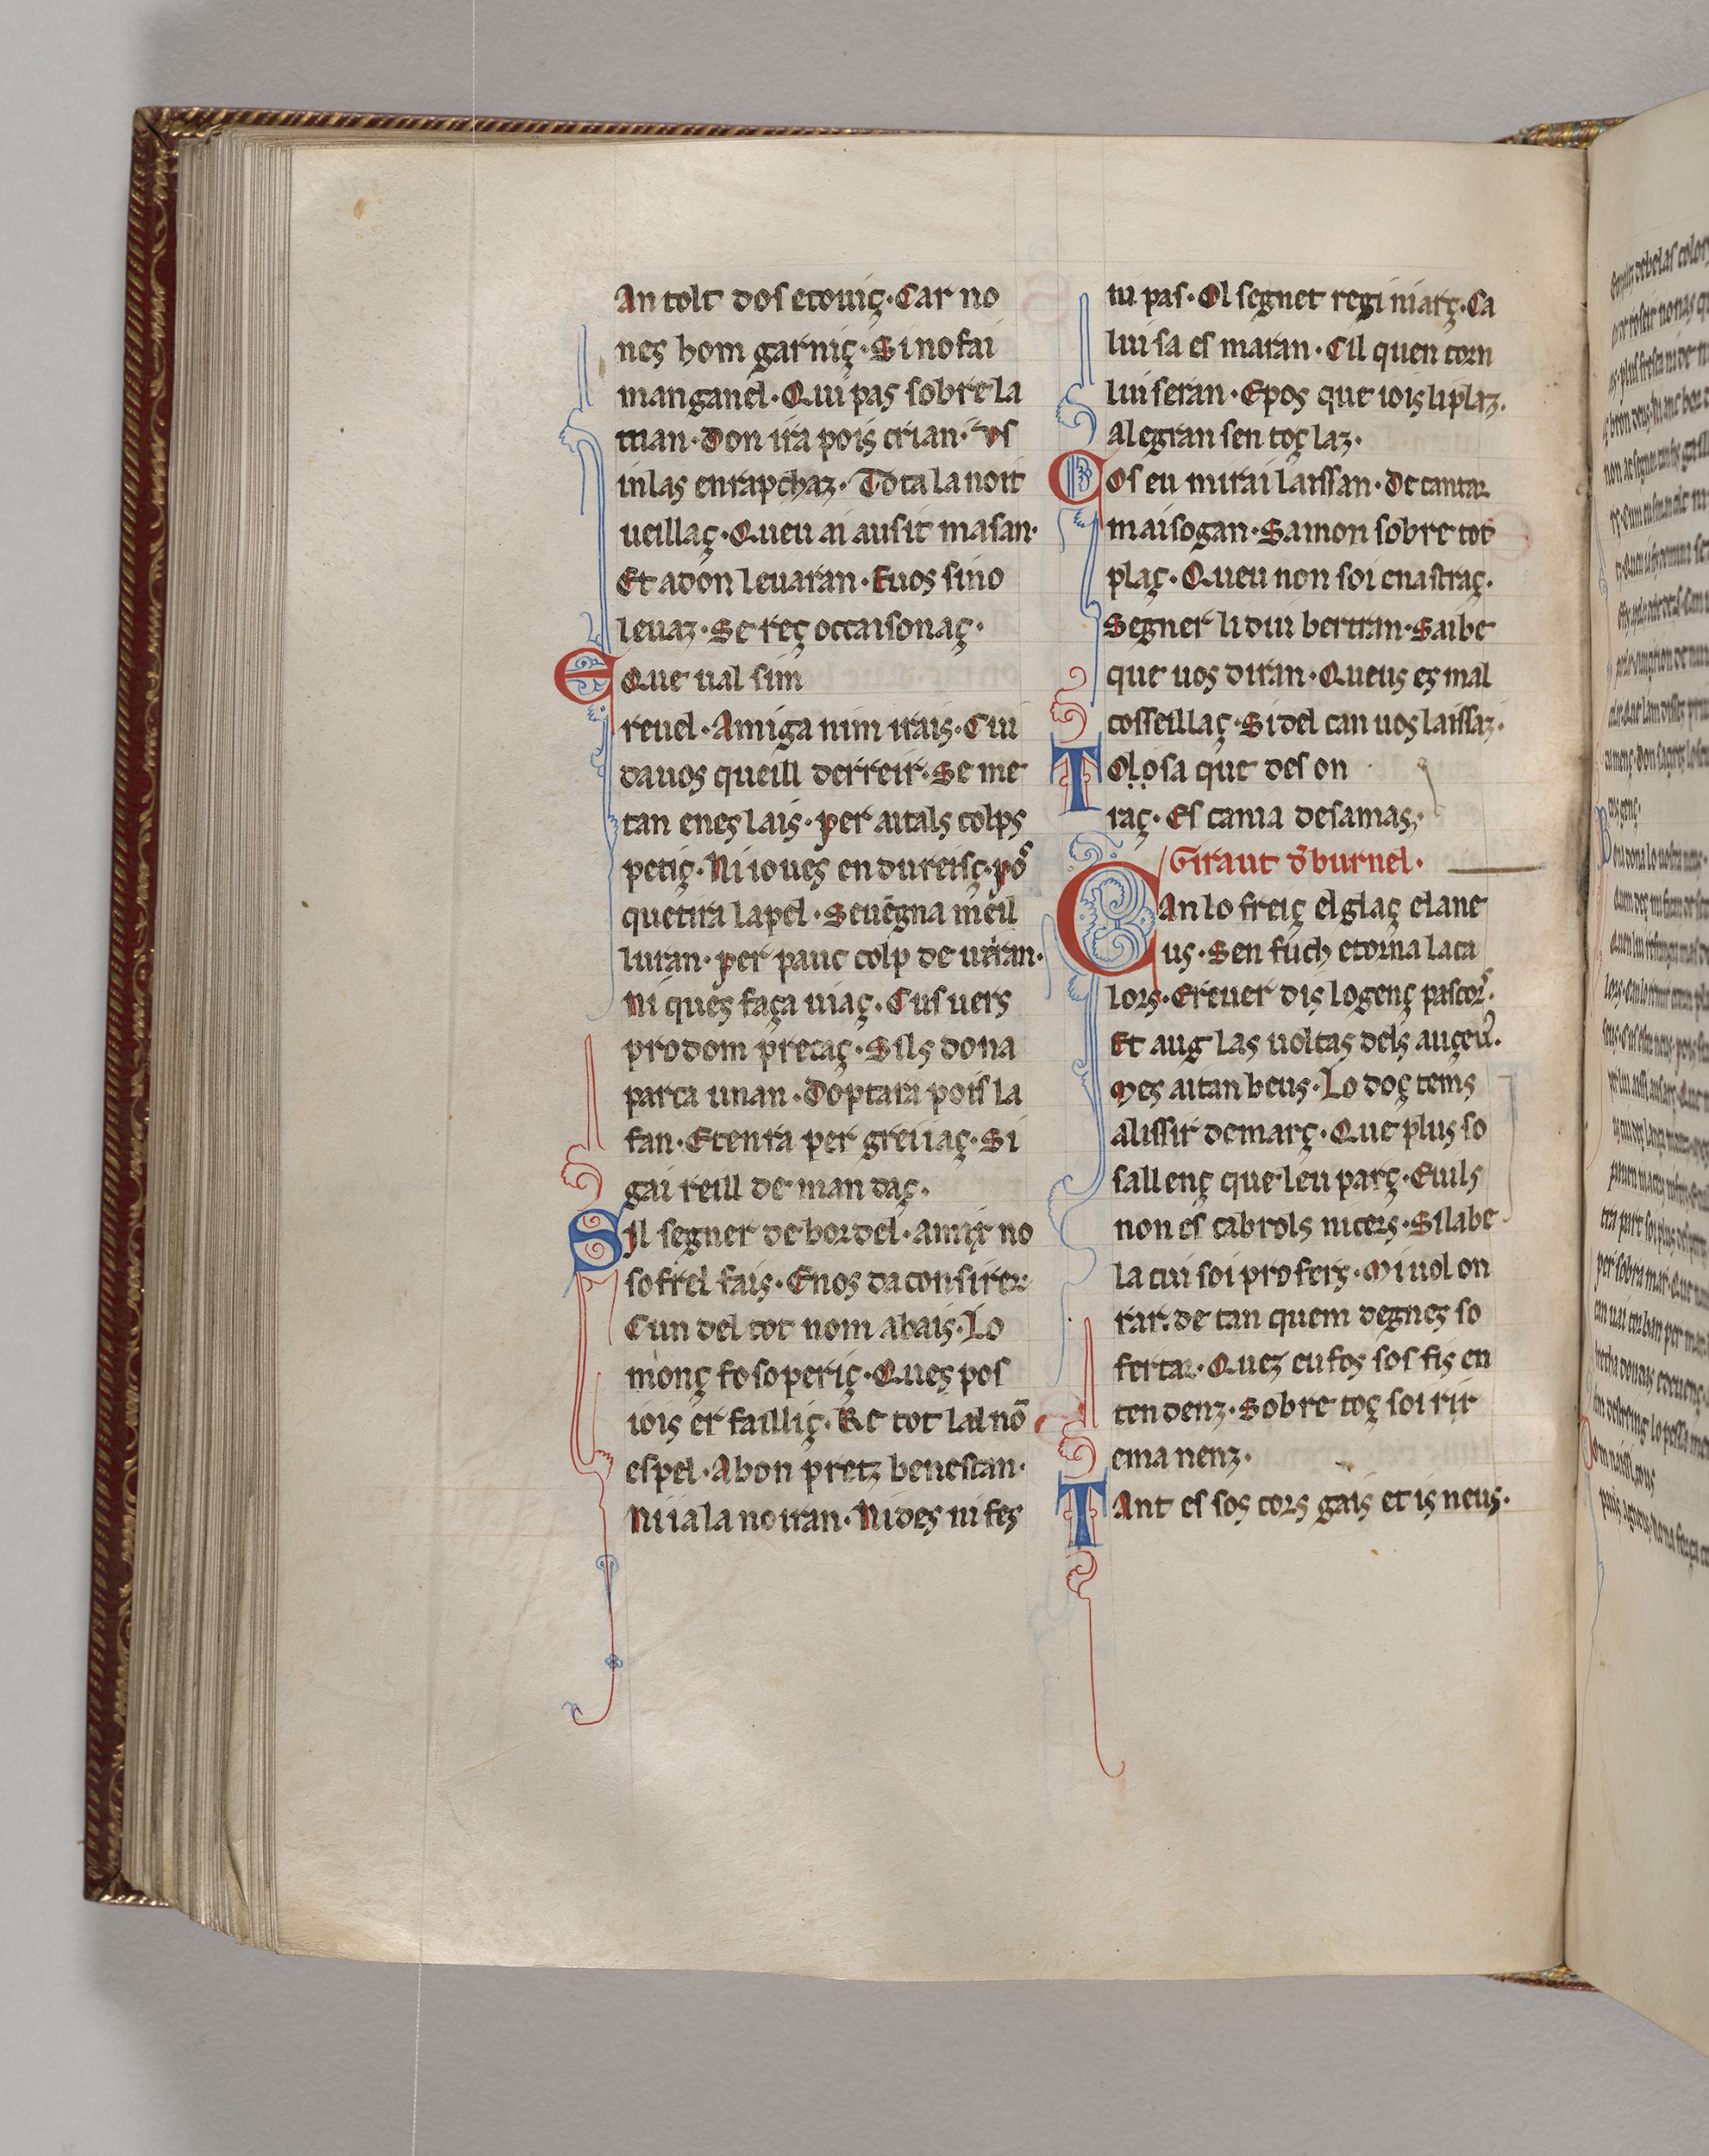 An tolt dos e touiç· Car no
nes hom garniç· Si no fai
manganel· Qui pas sobre la
man· Don ira pois crian· Vs
in las en rapchaz· Tota la noit
ueillaç· Queu ai ausit masan·
Et adōn leuaran· Euos si no
leuaz· Se reç occaisonaç·
E Que ual sim
reuel· Amiga nim irais· Cui
da uos queill derreir· Se me
tan enes lais· per aitals colps
petiç· Ni ioues en dureisç· po
que tira la pel· Seuēgna meil
luran· per pauc colp de uiran·
Ni ques faça uiaç· Cus uers
prodom preçaç· Sils dona
parta unan· Doptara pois la
fan· E tenra per greuiaç· Si
gai reill de man daç·
Sil segner de bordel· amir no
sofrel fais· Enos da consirer
Cun del tot nom abais· Lo
monç fo soperiç· Ques pos
iois er failliç· Re tot lal nō
espel· A bon pretz benestan·
Ni ia la noiran· Ni des ni fez
ni pas· Ol segnet regi niarç· Ca
lui sa es maran· Cil quen torn
lui seran· E pos que iois li plaz·
Alegran sen toç laz·
Cos eu mirai laissan· De cantar
mais ogan· Sa mon sobre tot
plaç· Queu non soi enastraç·
Segner li dui bertran· Saibe
que uos diran· Queus es mal
cosseillaç· Si del can uos laissaz·
Tolosa que des on
raç· Es tania desamas·
Giraut d burnel·
Can lo freiç el glaç e la ne
us· Sen fuch e torna la ca
lors· E reuer dis lo genç pascors·
Et aug las uoltas dels auçeus·
Mes aitan beus· Lo doç tems
al issir de març· Que plus so
sallenç que leu parç· E uils
non es cabrols ni cers· Si la be
la cui soi profers· Mi uol on
rar· de tan quem degnes so
fertar· Quez eu fos sos fis en
tendenz· Sobre toç soi rir
e manenz·
Tant es sos cors gais et is neus·